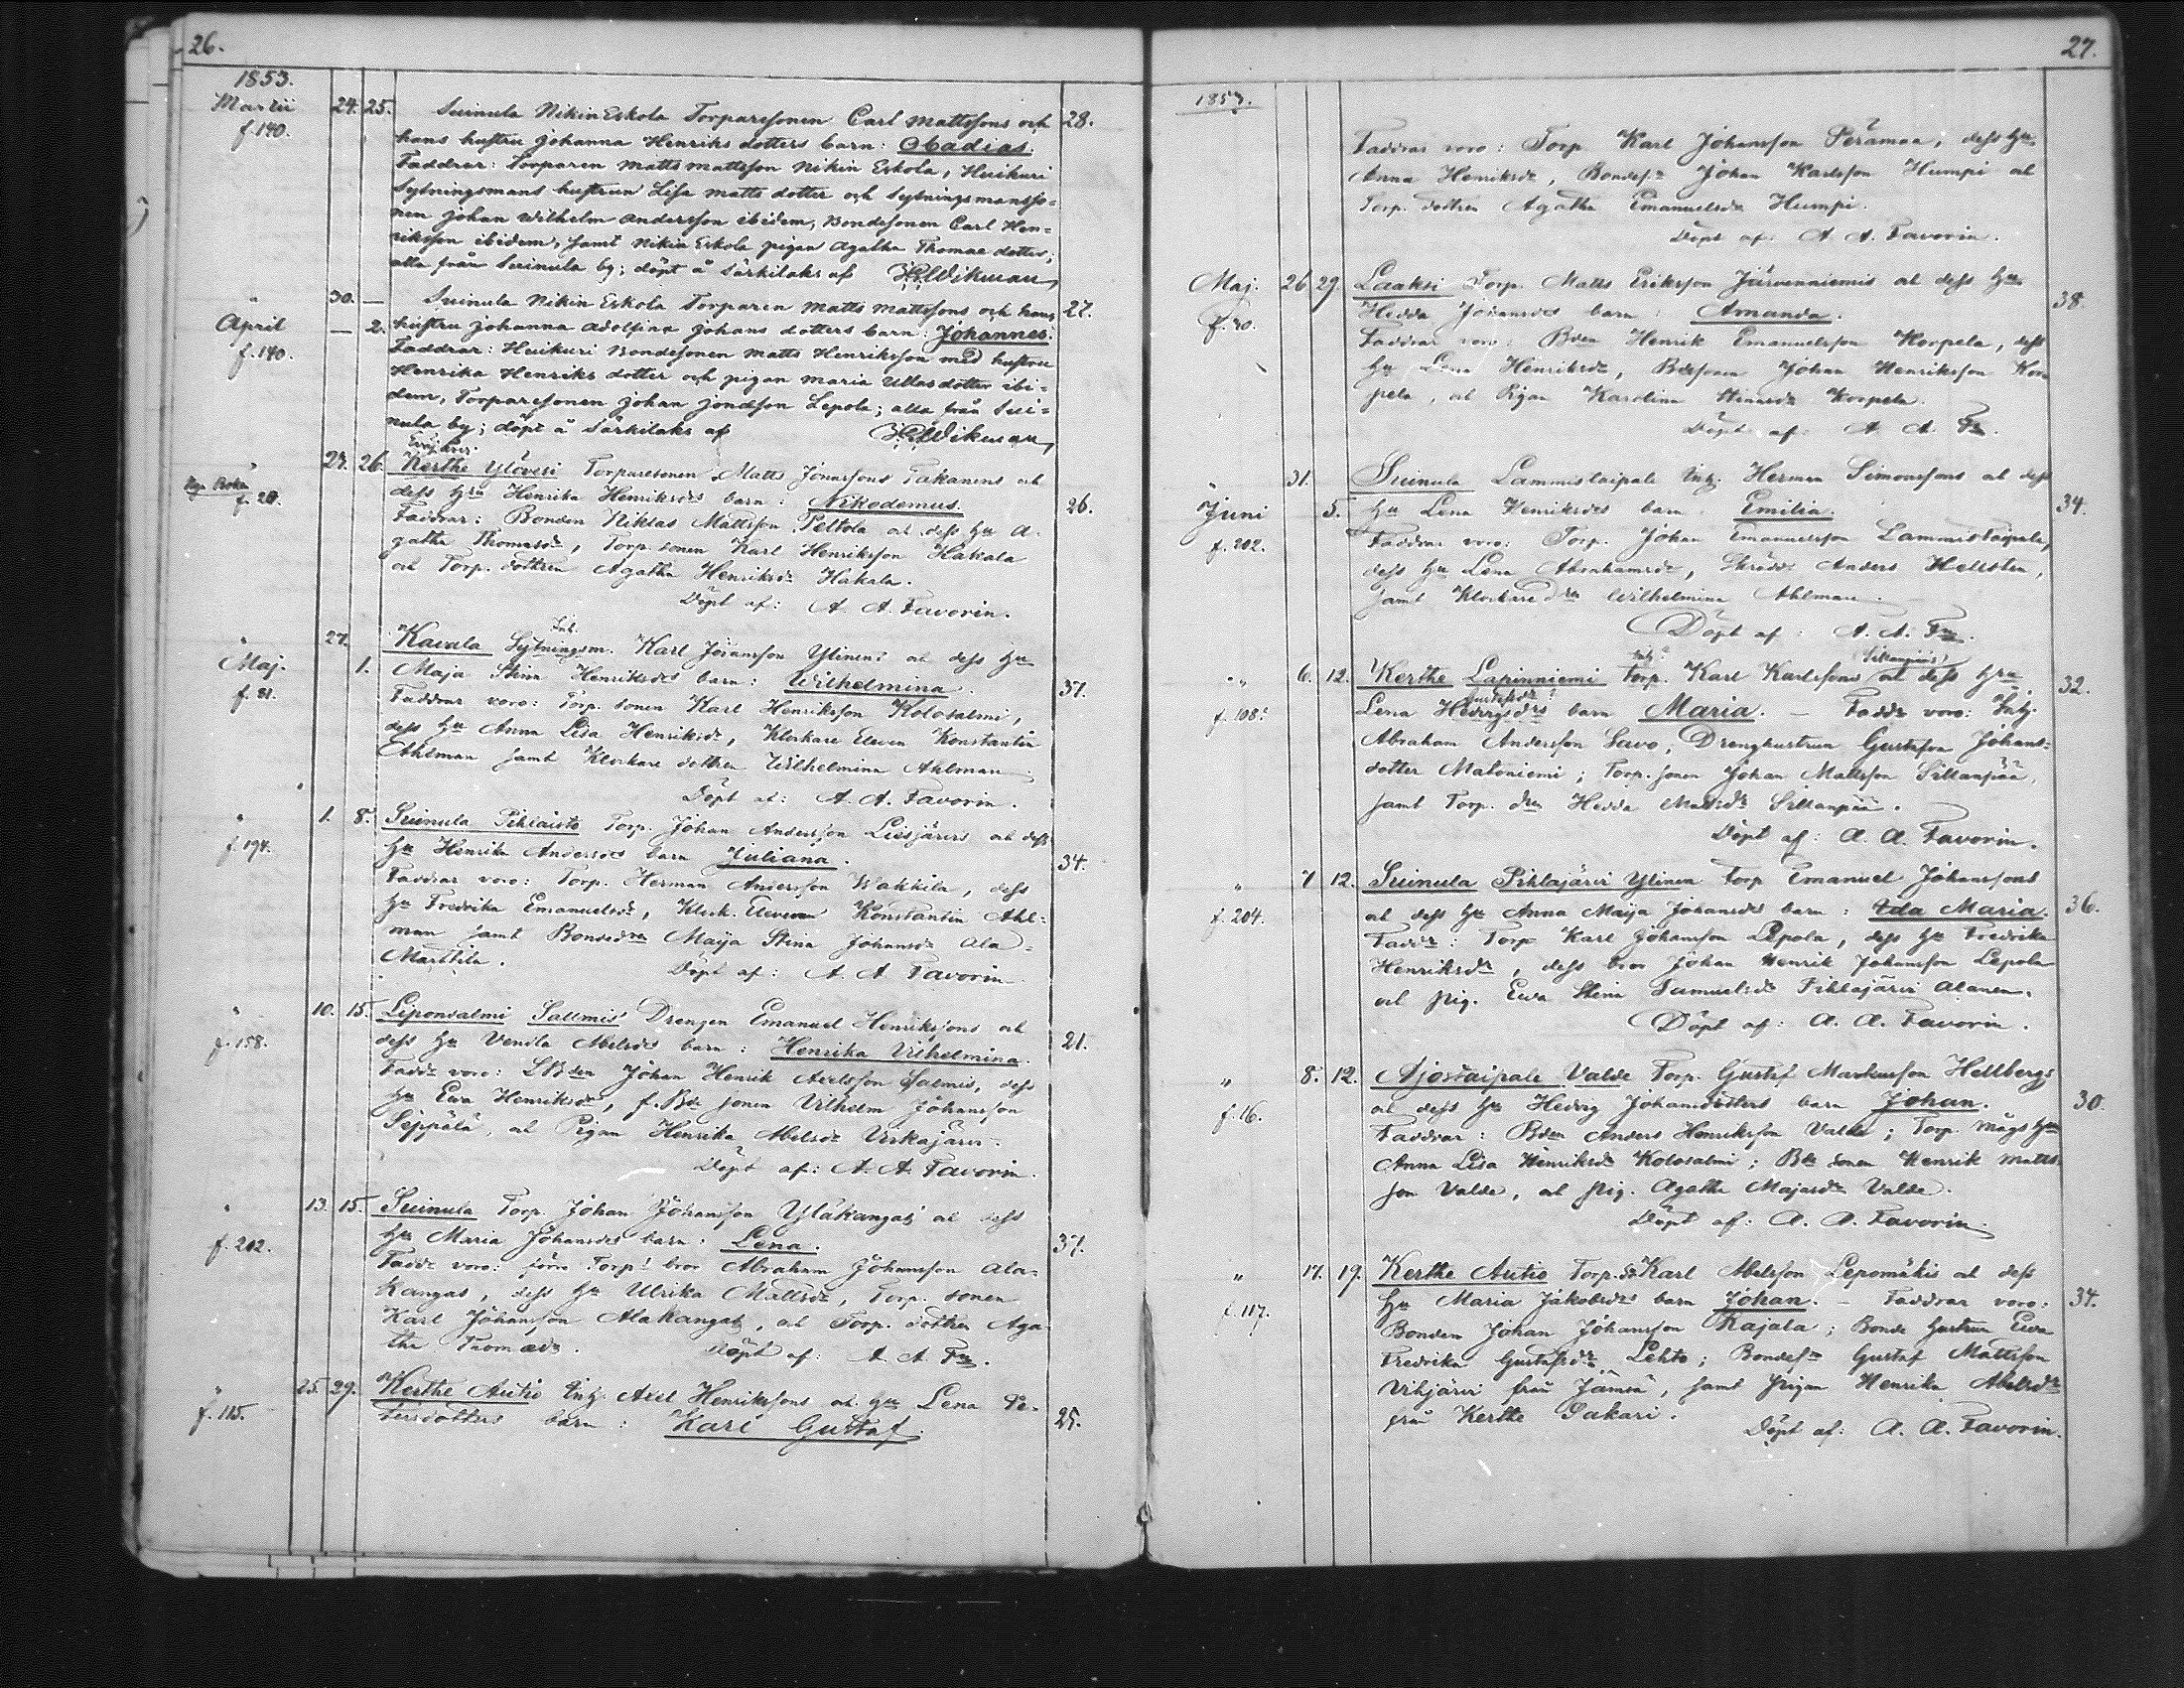 26.
1853.
Martii 24. 25. Suinula Nikin Eskola Torparesonen Carl Mattssons och 28.
f. 140. hans hustru Johanna Henriks dotters barn: Obadias.
Faddrar: Torparen Matts Mattsson Nikin Eskola, Huikuri
Sytningsmans hustrun Lisa Matts dotter och Sytningsmansso-
nen Johan Wilhelm Andersson ibidem, Bondesonen Carl Hen-
riksson ibidem, samt Nikin Eskola pigan Agatha Thomae dotter;
alla från Suinula by; döpt å Särkilaks af Wikman
" 30. — Suinula Nikin Eskola Torparen Matts Mattssons och hans 27.
April — 2. hustru Johanna Adolfina Johans dotters barn: Johannes.
f. 140. Faddrar: Huikuri Bondesonen Matts Henriksson med hustru
Henrika Henriks dotter och pigan Maria Ullas dotter ibi-
dem, Torparesonen Johan Lepola; alla från Sui-
nula by; döpt å Särkilaks af Wikman
" 24. 26. Kerthe Ylöveri Torparesonen Matts Jönnssons Takanens och
f. 20. dess Hru Henrika Henriksdrs barn: Nikodemus. 26.
Faddrar: Bonden Niklas Mattsson Peltola och dess Hu A-
gatha Thomasdr, Torp. sonen Karl Henriksson Hakala
och Torp. dottren Agatha Henriksdr Hakala.
Döpt af: A. A. Favorin.
" 27. Kavala Sytningsm. Inh. Karl Johansson Ylinens och dess Hu
Maj. 1. Maja Stina Henriksdrs barn: Wilhelmina. 37.
f. 81. Faddrar voro: Torp. sonen Karl Henriksson Kolosalmi,
dess Hu Anna Lisa Henriksdr, Klockare Eleven Konstantin
Ahlman samt Klockare dottren Wilhelmina Ahlman
Döpt af: A. A. Favorin.
" 1. 8. Suinula Pihlaisto Torp. Johan Andersson Liesjärvis och dess
f. 194. Hu Henrika Andersdrs barn Juliana. 34.
Faddrar voro: Torp. Herman Andersson Wakkila, dess
Hu Fredrika Emanuelsdr, Klock. Eleven Konstantin Ahl-
man samt Bondedrn Maija Stina Johansdr Ala-
Marttila. Döpt af: A. A. Favorin
" 10. 15. Liponsalmi Salmis Drengen Emanuel Henrikssons och
f. 158. dess Hu Vendla Abelsdrs barn: Henrika Vilhelmina. 21.
Faddr voro: Johan Henrik Axelsson Salmis, dess
Hu Ewa Henriksdr, f. Bde sonen Vilhelm Johansson
Seppälä, och Pigan Henrika Abelsdr
Döpt af: A. A. Favorin.
" 13. 15. Suinula Torp. Johan Johansson Yläkangas och dess
f. 202. Hu Maria Johansdrs barn: Lena. 37.
Faddr voro: förre Torp. bror Abraham Johansson Ala-
kangas, dess Hu Ulrika Mattsdr, Torp. sonen
Karl Johansson Alakangas, och Torp. dottren Aga-
tha Thomædr. Döpt af: A. A. Fn.
" 25. 29. Kerthe Autio Inh. Axel Henrikssons och Hu Lena Pe-
f. 115. tersdotters barn: Karl Gustaf. 25.
27.
1853.
Faddrar voro: Torp Karl Johansson Perämaa, dess Hu
Anna Henriksdr, Bondesn Johan Karlsson Humpi och
Torp. dottren Agatha Emanuelsdr Humpi.
Döpt af. A. A. Favorin.
Maj. 26 29. Laaksi Torp. Matts Eriksson Järvenniemis och dess Hu 38.
f. 30. Hedda Johansdrs barn: Amanda.
Faddrar voro: Bden Henrik Emanuelsson Korpela, dess
Hu Lena Henriksdr, Bdesonen Johan Henriksson Kor-
pela, och Pigan Karolina Korpela.
Döpt af. A. A. Fn.
" 31. Suinula Lammistaipale Inh. Herman Simonssons och dess 34.
Juni 5. Hu Lena Henriksdrs barn Emilia.
f. 202. Faddrar voro: Torp. Johan Emanuelsson Lammistaipale,
dess Hu Lena Abrahamsdr, Skrädd. Anders Hellsten,
samt Klockare drn Wilhelmina Ahlman.
Döpt af: A. A. Fn.
" 6. 12. Kerthe Lapinniemi Torp. Karl Karlssons (Siltanpääs) och dess Hru 32.
f. 108. Lena Hedvigsdrs Gustafsdrs barn Maria. — Faddr voro: Inh.
Abraham Andersson Savo, Dränghustrun Gustafva Johans-
dotter Matoniemi; Torp. sonen Johan Mattsson Siltanpää,
samt Torp. drn Hedda Mattsdr Siltanpää.
Döpt af: A. A. Favorin.
" 7 12. Suinula Pihlajärvi Ylinen Torp Emanuel Johanssons
f. 204. och dess Hu Anna Maija Johansdrs barn: Ida Maria. 36.
Faddr: Torp Karl Johansson Lepola, dess Hu Fredrika
Henriksdr, dess bror Johan Henrik Johansson Lepola
och pig. Ewa Stina Samuelsdr Pihlajärvi Alanen.
Döpt af: A. A. Favorin.
" 8. 12. Ajostaipale Valde Torp. Gustaf Markusson Hellbergs
f. 16. och dess Hu Hedvig Johansdotters barn Johan. 30.
Faddrar: Bden Anders Henriksson Valde; Torp. mågs Hu
Anna Lisa Henriksdr Kolosalmi; Bde sonen Henrik Matts-
son Valde, och pig. Agatha Majasdr Valde.
Döpt af: A. A. Favorin.
" 17. 19. Kerthe Autio Torp. Karl Abelsson Lepomäkis och dess
f. 117. Hu Maria Jakobsdrs barn Johan. — Faddrar voro: 34.
Bonden Johan Johansson Rajala; Bonde hustrun Ewa
Fredrika Gustafsdr Lehto; Bondesn Gustaf Mattsson
Vihjärvi från Jämsä, samt pigan Henrika Abelsdr
från Kerthe Sakari.
Döpt af: A. A. Favorin.